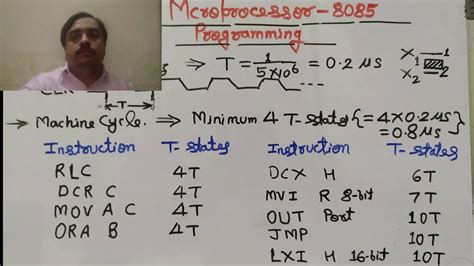 Mcroprocessor-8085
Programming
CLK
T
→ T = 1/5×10⁶ = 0.2 μs
X₁ 1
X₂ 2
→ Machine Cycle. ⇒ Minimum 4 T-states {= 4×0.2μs
= 0.8μs
Instruction T-states
RLC 4T
DCR C 4T
MOV A C 4T
ORA B 4T
Instruction T-states
DCX H 6T
MVI R 8-bit 7T
OUT Port 10T
JMP 10T
LXI H 16-bit 10T